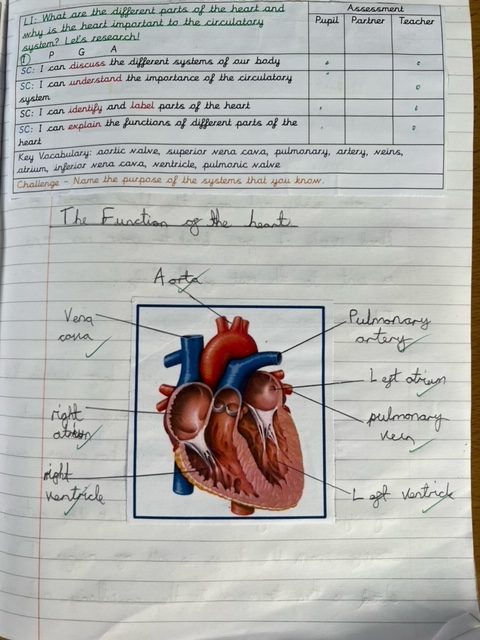 LI: What are the different parts of the heart and
why is the heart important to the circulatory
system? Let's research!
① P G A
Assessment
Pupil Partner Teacher
SC: I can discuss the different systems of our body
SC: I can understand the importance of the circulatory
system
SC: I can identify and label parts of the heart
SC: I can explain the functions of different parts of the
heart
Key Vocabulary: aortic valve, superior vena cava, pulmonary, artery, veins,
atrium, inferior vena cava, ventricle, pulmonic valve
Challenge - Name the purpose of the systems that you know.
The Function of the heart
Aorta
Vena
cava
Pulmonary
artery
Left atrium
right
atrium
pulmonary
vein
right
ventricle
Left ventricle